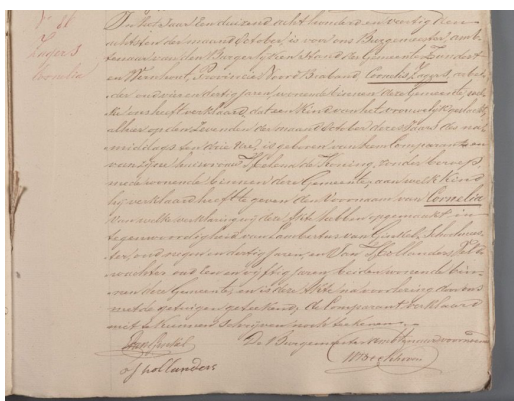 N° 68
Zagers
Cornelia
In het Jaar Een duizend acht honderd en veertig den
achtsten der maand October, is voor ons Burgemeester, amb-
tenaar van den Burgerlyken Stand der Gemeente Zundert
en Wernhout, Provincie Noord Braband, Cornelis Zagers, arbei-
der oud vier en dertig jaren, wonende binnen deze Gemeente, wel-
ke ons heeft verklaard, dat een Kind van het vrouwelyk geslacht,
alhier op den Zevenden der maand October dezes Jaars des na-
middags ten drie ure, is geboren van hem Comparant en
van zyne huisvrouw Helena de Koning, zonder beroep
mede wonende binnen deze Gemeente, aan welk Kind
hy verklaard heeft te geven den Voornaam van Cornelia
Van welke verklaring deze Akte hebben opgemaakt in
tegenwoordigheid van Lambertus van Ginkel, Schoolmees-
ter, oud negen en dertig jaren, en Jan Hollanders, Veld-
wachter oud een en vyftig jaren beiden wonende bin-
nen deze Gemeente, en is deze Akte na voorlezing door ons
neven de getuigen getekend, de Comparant verklaard
niet te kunnen Schryven noch tekenen.
De Burgemeester voornoemd
J hollanders